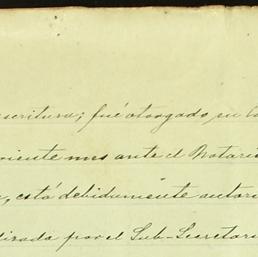 escritura; fué otorgado en la
oriente mes ante el Notari
, está debidamente autori
dirada por el Sub-Secretari